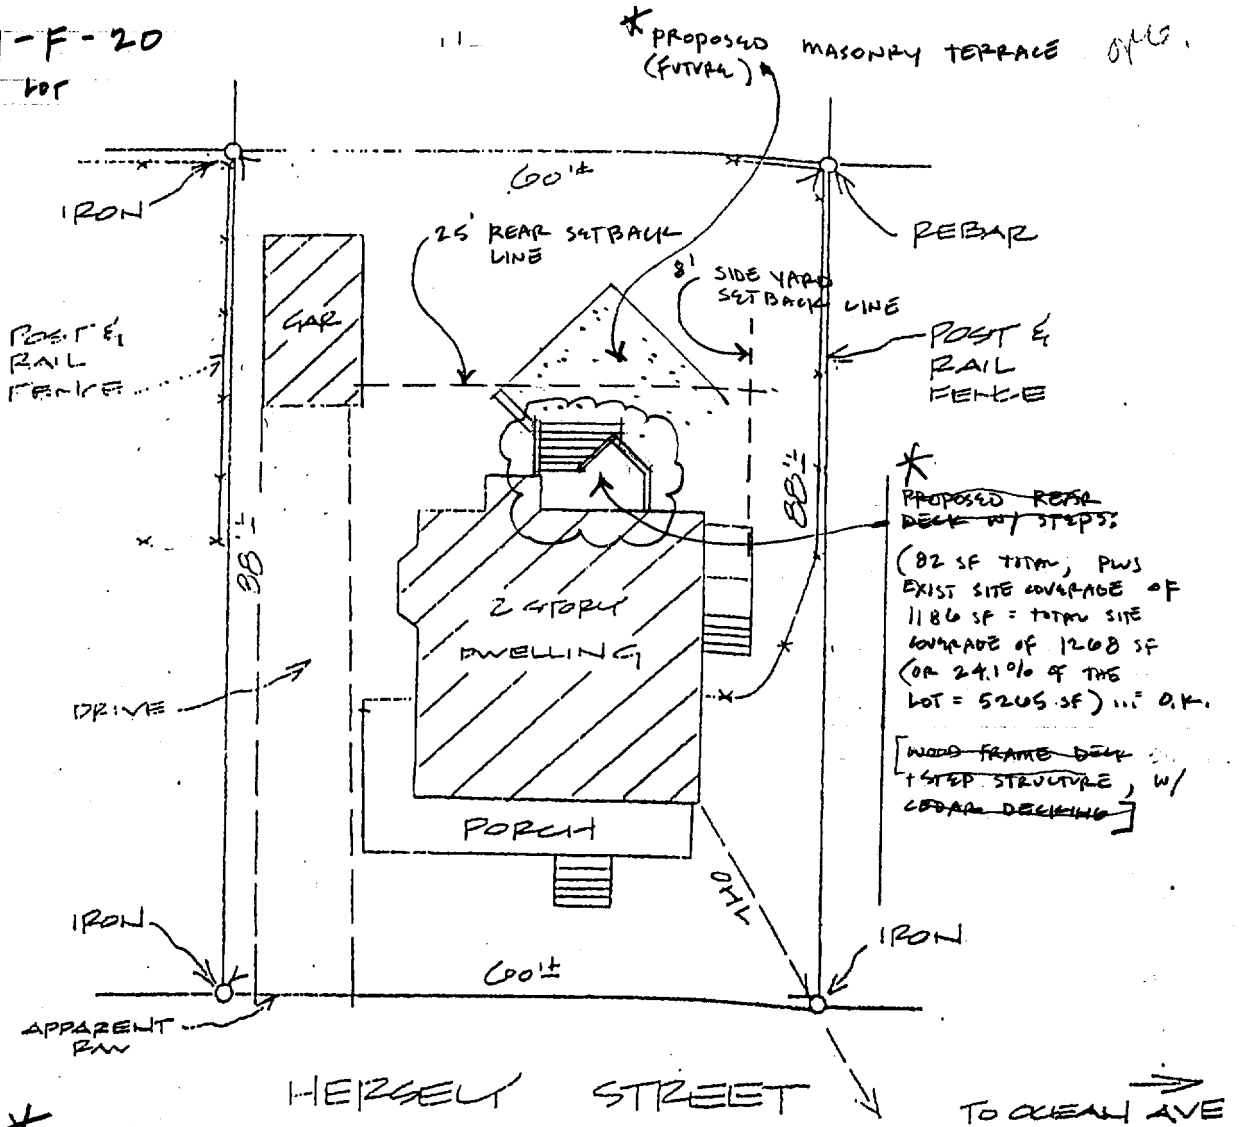 -F-20
LOT
* PROPOSED MASONRY TERRACE
(FUTURE)
60'±
IRON
REBAR
25' REAR SETBACK
LINE
8' SIDE YARD
SETBACK LINE
GAR
POST &
RAIL
FENCE
POST &
RAIL
FENCE
88'±
88'±
*
PROPOSED REAR
DECK W/ STEPS:
(82 SF TOTAL, PLUS
EXIST SITE COVERAGE OF
1186 SF = TOTAL SITE
COVERAGE OF 1268 SF
(OR 24.1% OF THE
LOT = 5265 SF) ... O.K.
[WOOD FRAME DECK
+ STEP STRUCTURE, W/
CEDAR DECKING]
2 STORY
DWELLING
DRIVE
PORCH
OHL
IRON
IRON
60'±
APPARENT
R/W
HERSEY STREET
TO OCEAN AVE
*